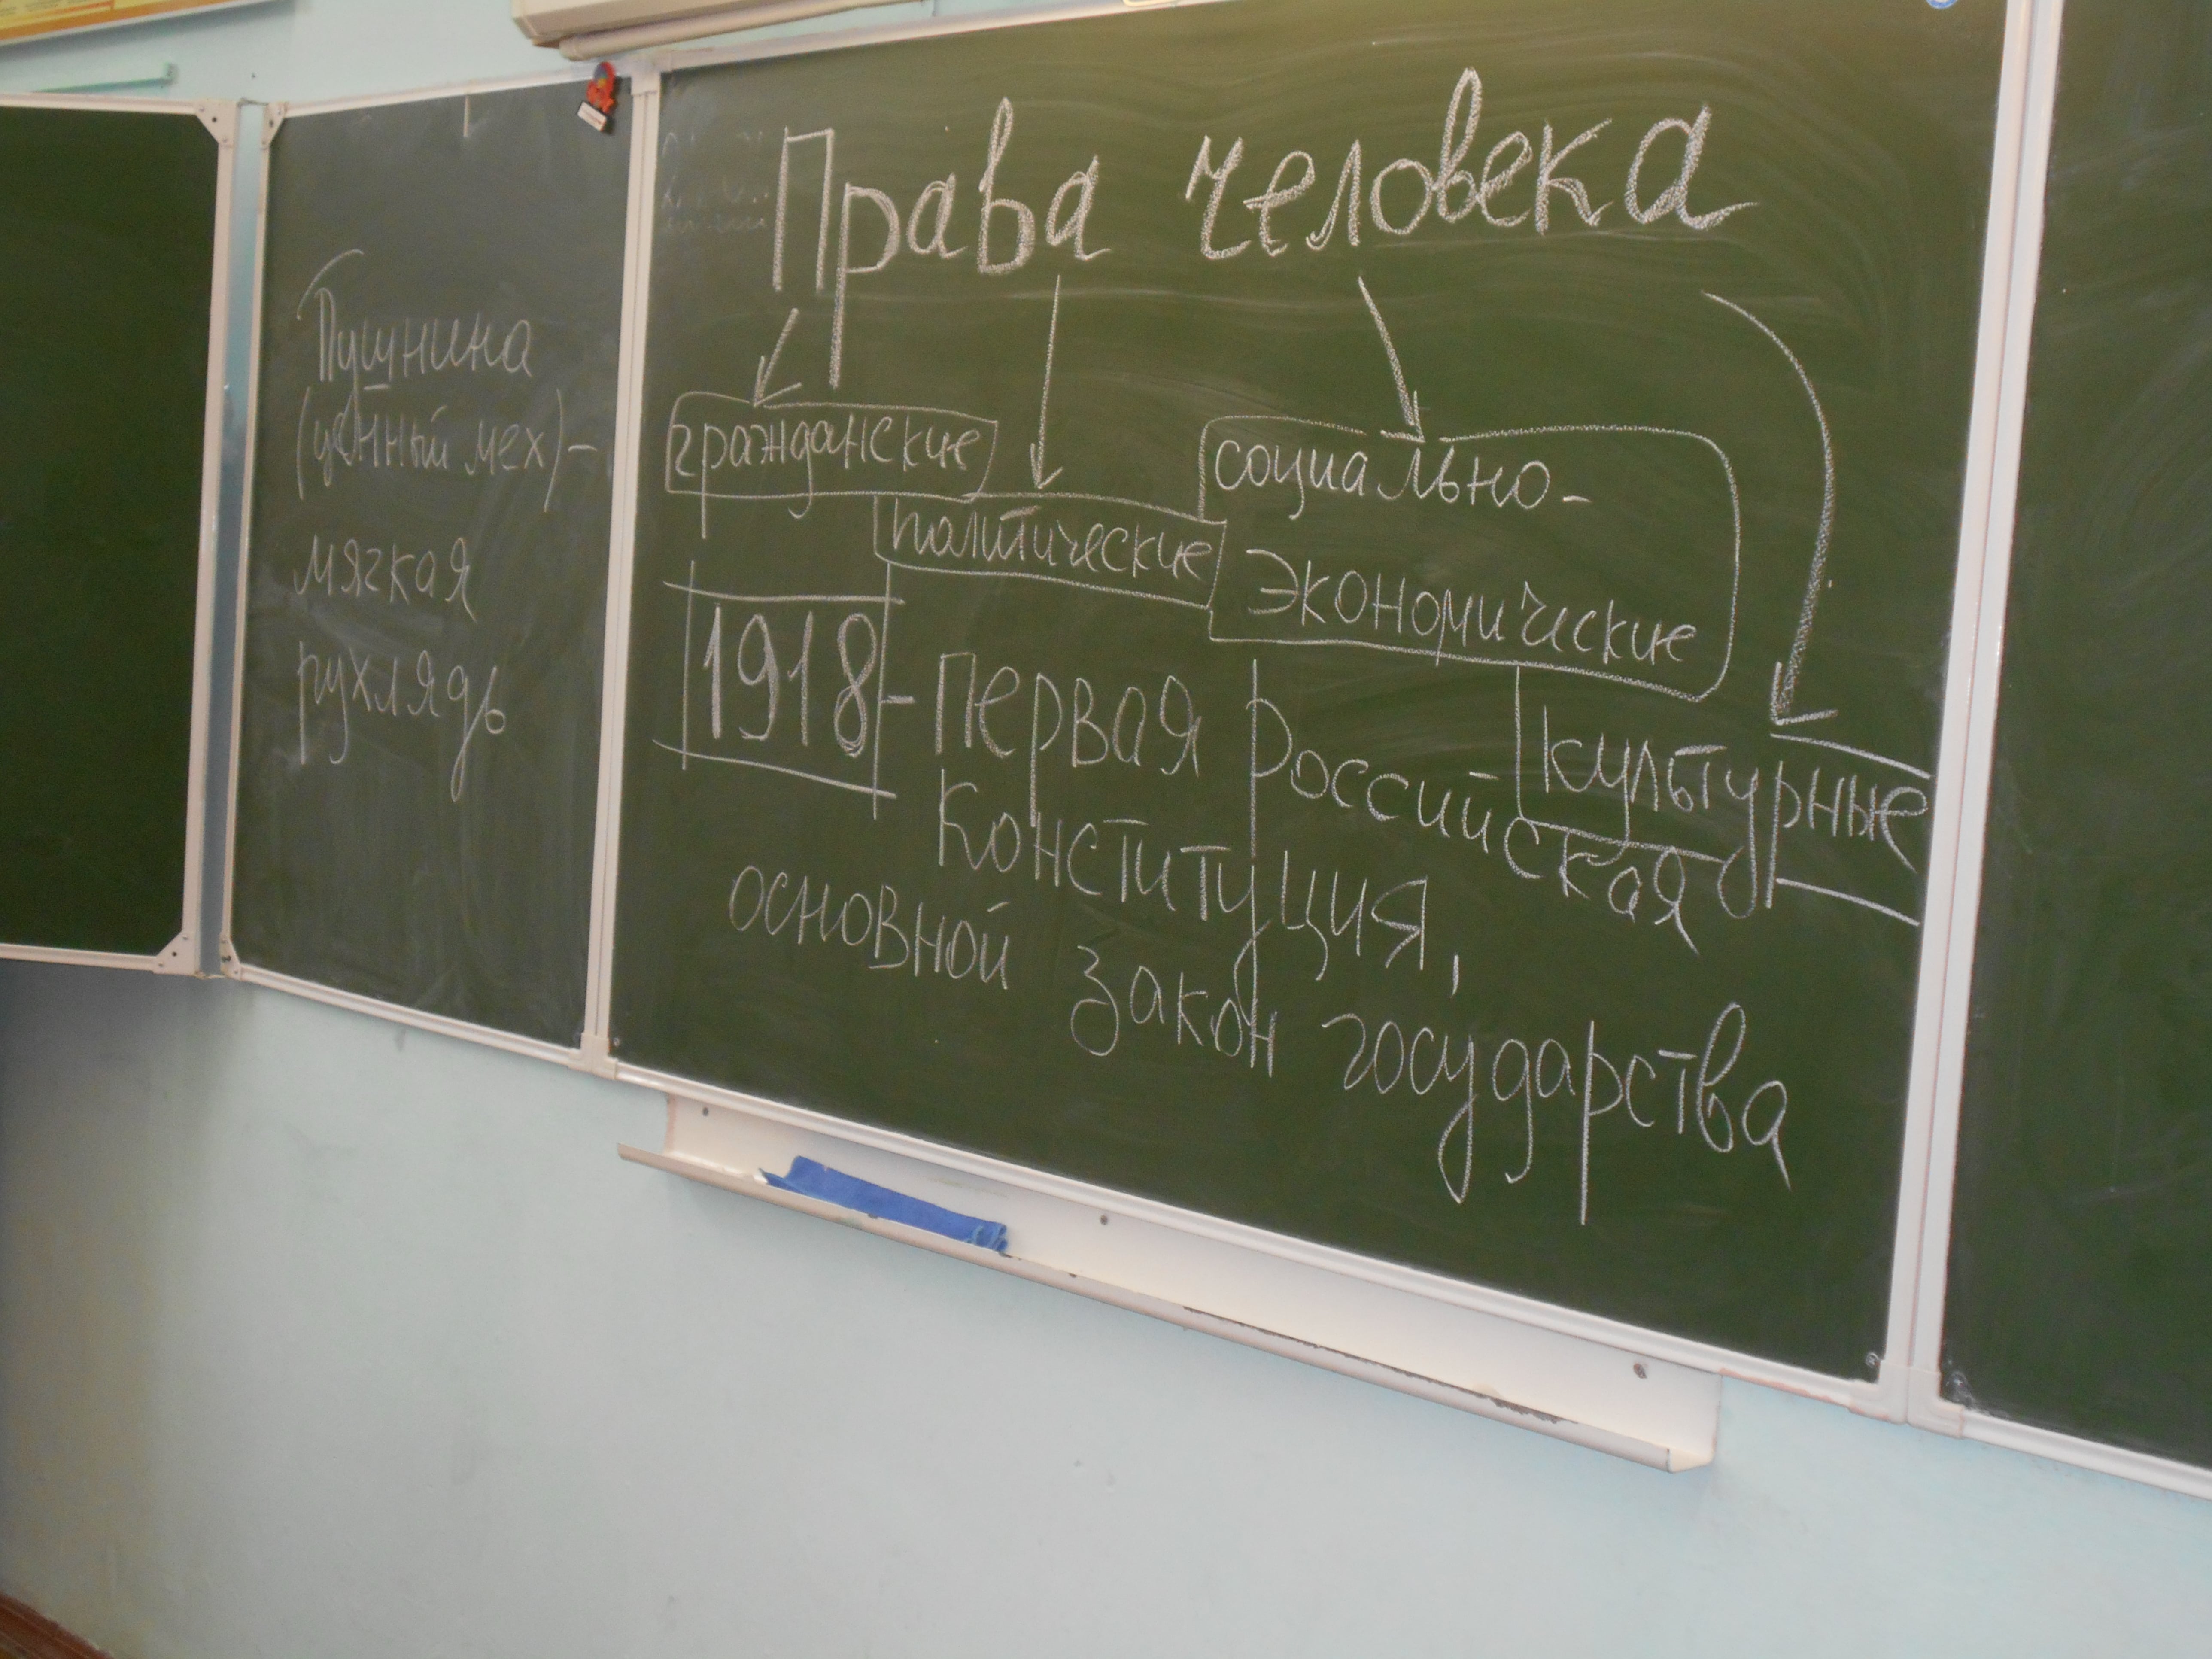 Пушнина
(ценный мех) -
мягкая
рухлядь
Права человека
гражданские
политические
социально-
экономические
культурные
1918 - первая российская
Конституция,
основной закон государства